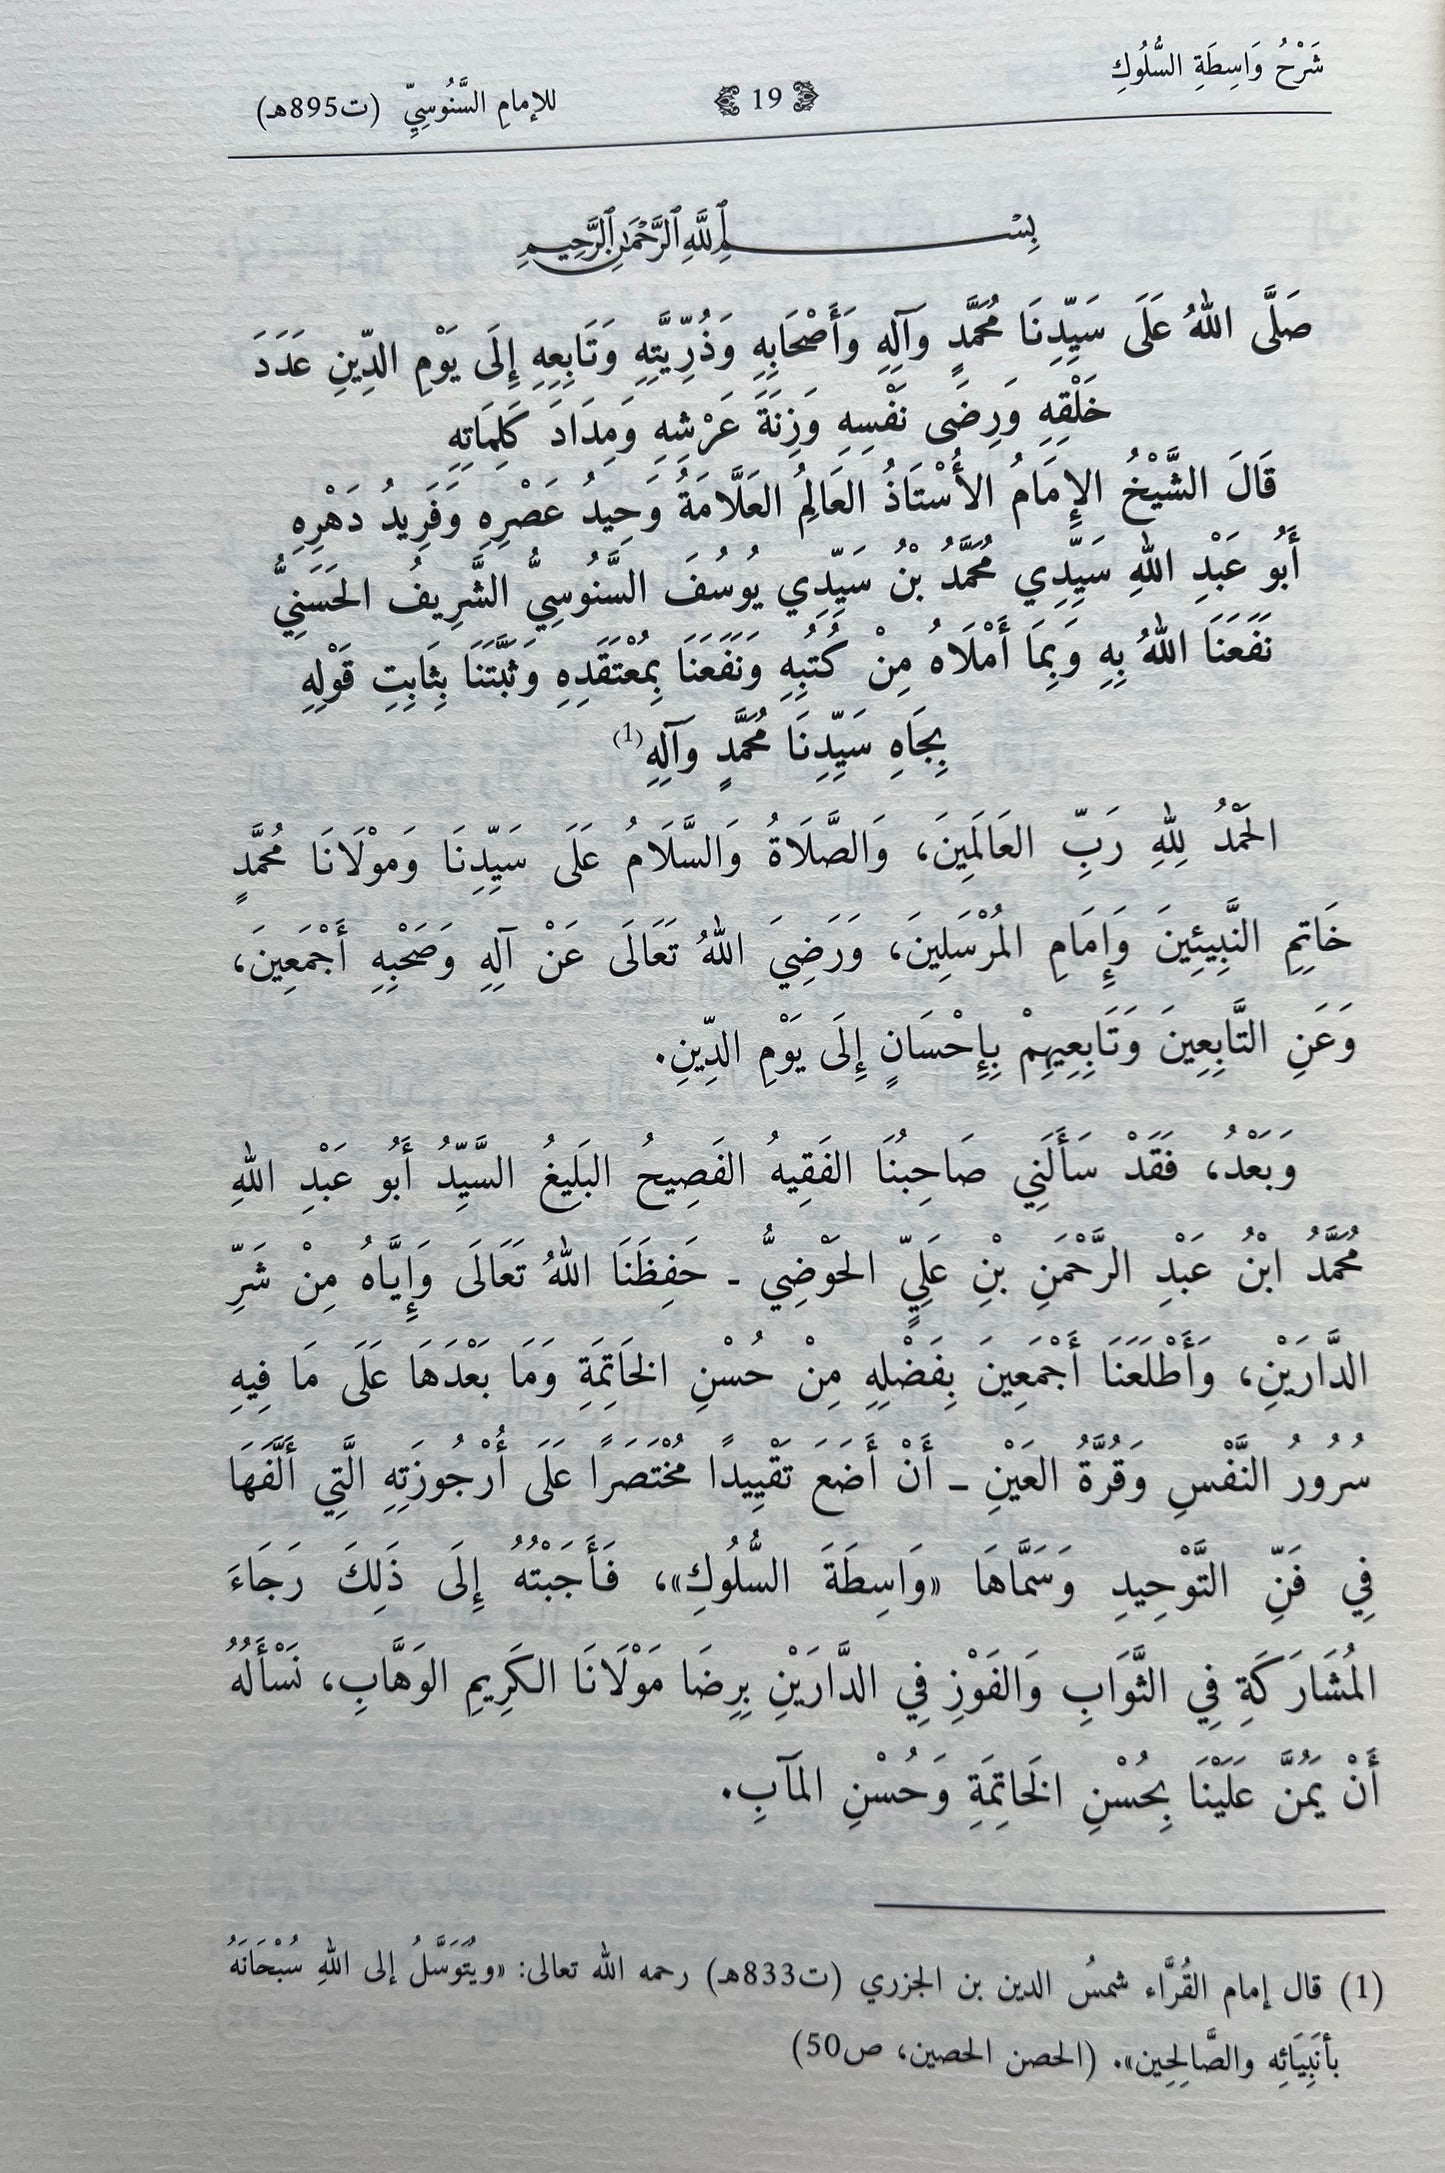 شَرْحُ وَاسِطَةِ السُّلُوكِ
19
للإمامِ السَّنُوسِيِّ (ت895هـ)
بِسْمِ ٱللَّهِ ٱلرَّحْمَٰنِ ٱلرَّحِيمِ
صَلَّى اللهُ عَلَى سَيِّدِنَا مُحَمَّدٍ وَآلِهِ وَأَصْحَابِهِ وَذُرِّيَّتِهِ وَتَابِعِهِ إِلَى يَوْمِ الدِّينِ عَدَدَ
خَلْقِهِ وَرِضَى نَفْسِهِ وَزِنَةَ عَرْشِهِ وَمِدَادَ كَلِمَاتِهِ
قَالَ الشَّيْخُ الإِمَامُ الأُسْتَاذُ العَالِمُ العَلَّامَةُ وَحِيدُ عَصْرِهِ وَفَرِيدُ دَهْرِهِ
أَبُو عَبْدِ اللهِ سَيِّدِي مُحَمَّدُ بْنُ سَيِّدِي يُوسُفَ السَّنُوسِيُّ الشَّرِيفُ الحَسَنِيُّ
نَفَعَنَا اللهُ بِهِ وَبِمَا أَمْلَاهُ مِنْ كُتُبِهِ وَنَفَعَنَا بِمُعْتَقَدِهِ وَثَبَّتَنَا بِثَابِتِ قَوْلِهِ
بِجَاهِ سَيِّدِنَا مُحَمَّدٍ وَآلِهِ(1)
الحَمْدُ لِلهِ رَبِّ العَالَمِينَ، وَالصَّلَاةُ وَالسَّلَامُ عَلَى سَيِّدِنَا وَمَوْلَانَا مُحَمَّدٍ
خَاتِمِ النَّبِيئِينَ وَإِمَامِ المُرْسَلِينَ، وَرَضِيَ اللهُ تَعَالَى عَنْ آلِهِ وَصَحْبِهِ أَجْمَعِينَ،
وَعَنِ التَّابِعِينَ وَتَابِعِيهِمْ بِإِحْسَانٍ إِلَى يَوْمِ الدِّينِ.
وَبَعْدُ، فَقَدْ سَأَلَنِي صَاحِبُنَا الفَقِيهُ الفَصِيحُ البَلِيغُ السَّيِّدُ أَبُو عَبْدِ اللهِ
مُحَمَّدُ ابْنُ عَبْدِ الرَّحْمَنِ بْنِ عَلِيٍّ الحَوْضِيُّ ـ حَفِظَنَا اللهُ تَعَالَى وَإِيَّاهُ مِنْ شَرِّ
الدَّارَيْنِ، وَأَطْلَعَنَا أَجْمَعِينَ بِفَضْلِهِ مِنْ حُسْنِ الخَاتِمَةِ وَمَا بَعْدَهَا عَلَى مَا فِيهِ
سُرُورُ النَّفْسِ وَقُرَّةُ العَيْنِ ـ أَنْ أَضَعَ تَقْيِيدًا مُخْتَصَرًا عَلَى أُرْجُوزَتِهِ الَّتِي أَلَّفَهَا
فِي فَنِّ التَّوْحِيدِ وَسَمَّاهَا «وَاسِطَةَ السُّلُوكِ»، فَأَجَبْتُهُ إِلَى ذَلِكَ رَجَاءَ
المُشَارَكَةِ فِي الثَّوَابِ وَالفَوْزِ فِي الدَّارَيْنِ بِرِضَا مَوْلَانَا الكَرِيمِ الوَهَّابِ، نَسْأَلُهُ
أَنْ يَمُنَّ عَلَيْنَا بِحُسْنِ الخَاتِمَةِ وَحُسْنِ المَآبِ.
(1) قال إمام القُرَّاء شمسُ الدين بن الجزري (ت833هـ) رحمه الله تعالى: «ويُتَوَسَّلُ إلى اللهِ سُبْحَانَهُ
بأنبِيَائِه والصَّالِحِين». (الحصن الحصين، ص50)